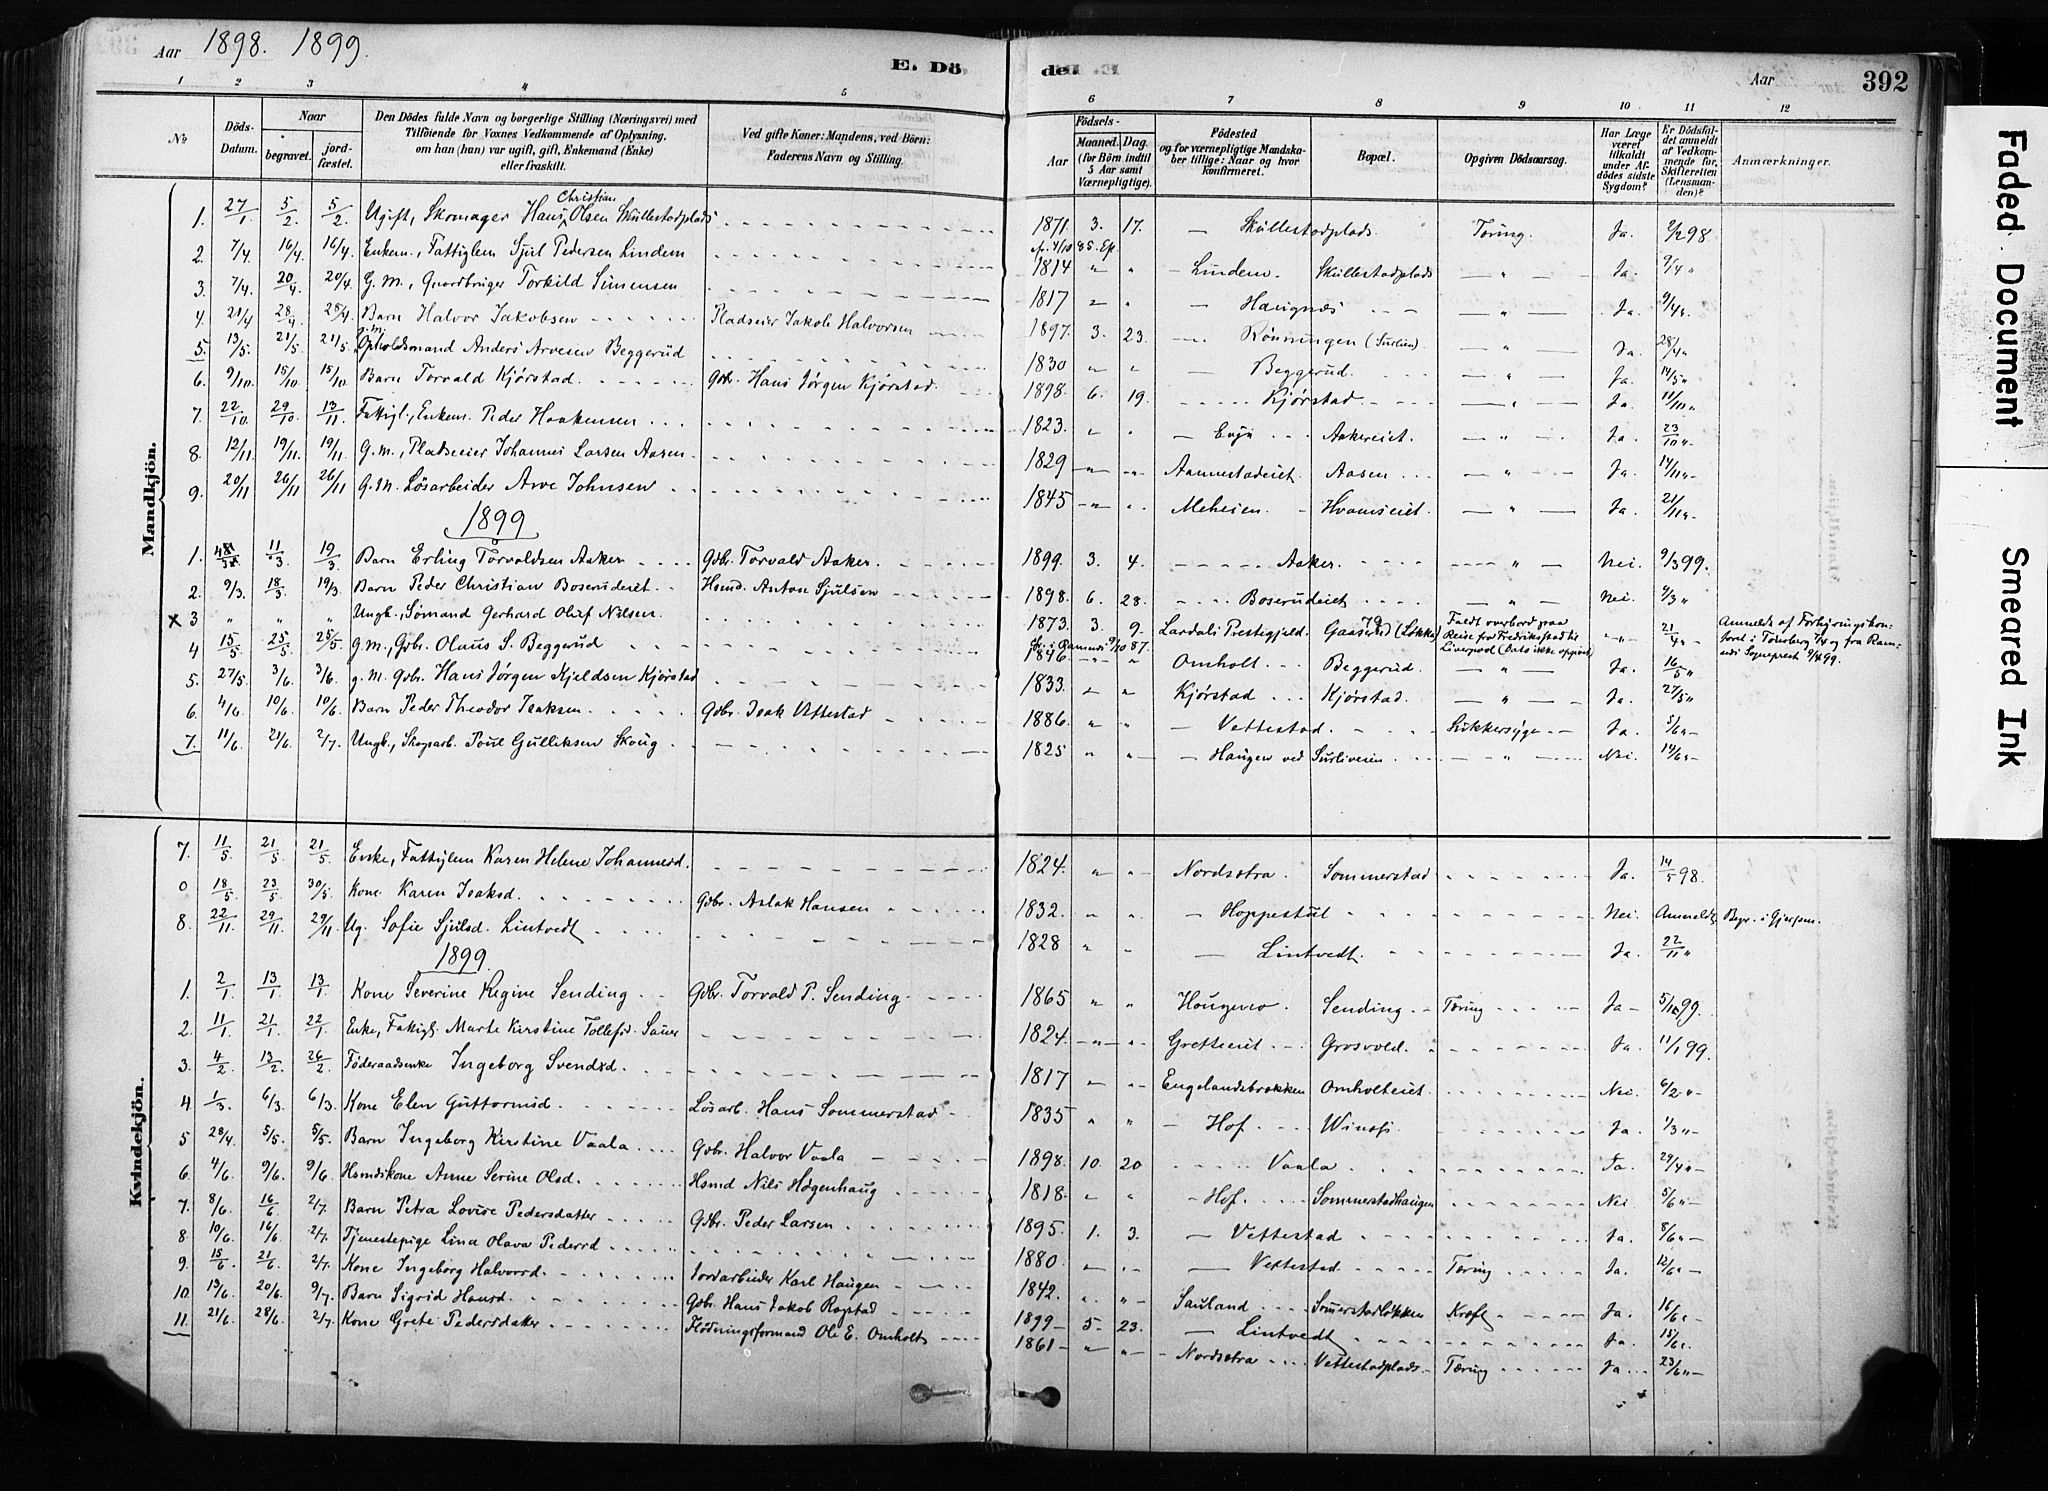 Aar 1898. 1899.
E. Dö de.
Aar
392
1 2 3 4 5 6 7 8 9 10 11 12
No.
Döds-Datum.
Naar
begravet. jordfæstet.
Den Dödes fulde Navn og borgerlige Stilling (Næringsvei) med Tilföiende for Voxnes Vedkommende af Oplysning, om han (hun) var ugift, gift, Enkemand (Enke) eller fraskilt.
Ved gifte Koner: Mandens, ved Börn: Faderens Navn og Stilling.
Födsels-
Aar Maaned. Dag. (for Börn indtil 5 Aar samt Værnepligtige).
Födested og for værnepligtige Mandskaber tillige: Naar og hvor konfirmeret.
Bopæl.
Opgiven Dödsaarsag.
Har Læge været tilkaldt under Afdödes sidste Sygdom?
Er Dödsfaldet anmeldt af Vedkommende for Skifteretten (Lensmanden)?
Anmærkninger.
Mandkjön.
Christian
1. 27/1. 5/2. 5/2. Ugift, Skomager Hans Olsen Skullestadplads 1871. 3. 17. — Skullestadplads. Tæring. Ja. 2/2 98
2. 7/4. 16/4. 16/4. Enkem., Fattiglem Sjul Pedersen Lindem 1814 " " — Lindem. Skullestadplads — " — Ja. 9/4 "
3. 7/4. 20/4. 20/4. G. M., Gaardbruger Torkild Simensen 1817 " " — Haugnæs — " — Ja. 9/4 "
4. 21/4 28/4 28/4. Barn Halvor Jakobsen Pladseier Jakob Halvorsen 1897. 3. 23. — Rönningen (Surlien) — " — Ja. 28/4 "
5. 13/5. 21/5 21/5. g. m. Opholdsmand Anders Arvesen Beggerud 1830 " " — Beggerud. — " — Ja. 14/5 "
6. 9/10. 15/10 15/10. Barn Torvald Kjörstad. Gbr. Hans Jörgen Kjörstad. 1898. 6. 19. Kjörstad — " — Ja. 11/10 "
7. 22/10. 29/10. 13/11. Fattigl., Enkem. Peder Haakensen 1823. " " — Evju Aakereiet. — " — Ja. 23/10 "
8. 12/11. 19/11. 19/11. G. m., Pladseeier Johannes Larsen Aasen 1829 " " Aannestadeiet. Aasen — " — Ja. 14/11 "
9. 20/11 26/11 26/11 G. M. Lösarbeider Arve Johnsen 1845 " " Meheien. Hvamseiet. — " — Ja. 21/11 "
1899
1. 11/3 19/3. Barn Erling Torvaldsen Aaker Gbr. Torvald Aaker. 1899. 3. 4. Aaker. " Nei. 9/3 99.
2. 9/3. 18/3 19/3. Barn Peder Christian Boserudeiet. Hsmd. Anton Sjulsen 1898. 6. 28. Boserudeiet " Nei. 9/3 "
x 3 " " " Ungk., Sömand Gerhard Oluf Nilsen. 1873. 3. 9. Lardals Prestegjeld. Gaaserud (Lökka) Faldt overbord paa Reise fra Fredrikstad til Liverpool (Dato ikke opgivet) " 21/4 " Anmeldt af Forhyringskontoret i Tönsberg 7/4 og fra Ramnes Sogneprest 9/4 99.
4 15/5 25/5. 25/5. g. m., Gbr. Olaus S. Beggerud 1846 " " Omholt. Beggerud. — " — Ja. 16/5 "
5. 27/5 3/6. 3/6. g. M. Gbr. Hans Jörgen Kjeldsen Kjörstad 1833. " " Kjörstad Kjörstad. — " — Ja. 27/5 "
6. 4/6. 10/6. 10/6. Barn Peder Theodor Isaksen. Gbr. Isak Vettestad 1886. " " — Vettestad. Sukkersyge Ja. 5/6 "
7. 11/6. 21/6. 2/7. Ungk., Skogarb. Poul Gulliksen Skoug 1825 " " — Haugen ved Surliveien — " — Nei. 14/6 "
Kvindekjön.
7. 11/5. 21/5. 21/5. Enke, Fattiglem Karen Helene Johannesd. 1824. " " Nordsetra. Sommerstad Ja. 14/5 98.
0 18/5. 23/5. 30/5. Kone Karen Isaksd. Gbr. Aslak Hansen 1832. " " — Hoppestul Nei. Anmeldt. Begr. i Gjerpen.
8. 22/11. 29/11. 29/11 Ug. Sofie Sjulsd. Lintvedt 1828 " " — Lintvedt. Ja. 22/11 "
1899.
1. 2/1. 13/1 13/1. Kone Severine Regine Sending Gbr. Torvald P. Sending 1865 " " Sending Tæring Ja
2. 11/1. 21/1. 22/1. Enke, Fattigl. Marte Kirstine Tollefsd. 1824. " " Gretteeiet Ja. 11/1 99.
3. 4/2. 13/2. 26/2. Föderaadsenke Ingeborg Svendsd. 1817 " " Engelandsbrækken Omholteiet. Nei. 6/2 "
4 1/3. 6/3. 6/3. Kone Elen Guttormsd. Lösarb. Hans Sommerstad 1835 " " — Hof. Ja. 1/3 "
5 28/4. 5/5. 5/5. Barn Ingeborg Kirstine Vaala Gbr. Halvor Vaala 1898. 10. 20 Vaala Ja. 29/4 "
6. 4/6. 9/6. 9/6. Hsmdskone Anne Serine Olsd. Hsmd Nils Högenhaug 1818. " " Hof. Sommerstadhaugen Nei. 5/6 "
7. 8/6. 16/6 2/7. Barn Petra Lovise Pedersdatter Gbr. Peder Larsen 1895. 1. 3. — Vettestad Ja. 8/6 "
8. 10/6 16/6. 2/7. Tjenestepige Lina Olava Pedersd 1880. " " — Vettestad Tæring Ja. 12/6 "
9. 15/6 21/6 2/7. Kone Ingeborg Halvorsd. Jordarbeider Karl Haugen 1842. " " Sauland Somerstadlökken Kræft Ja. 16/6 "
10. 13/6. 20/6. 9/7. Barn Sigrid Hansd. Gbr. Hans Jakob Rogstad 1899 5 23. — Lintvedt Ja. 15/6 "
11. 21/6. 28/6. 2/7. Kone Grete Pedersdatter Flödningsformand Ole E. Omholt 1861 " " Nordsetra Vettestadplads Tæring Ja. 23/6 "
Faded Document
Smeared Ink